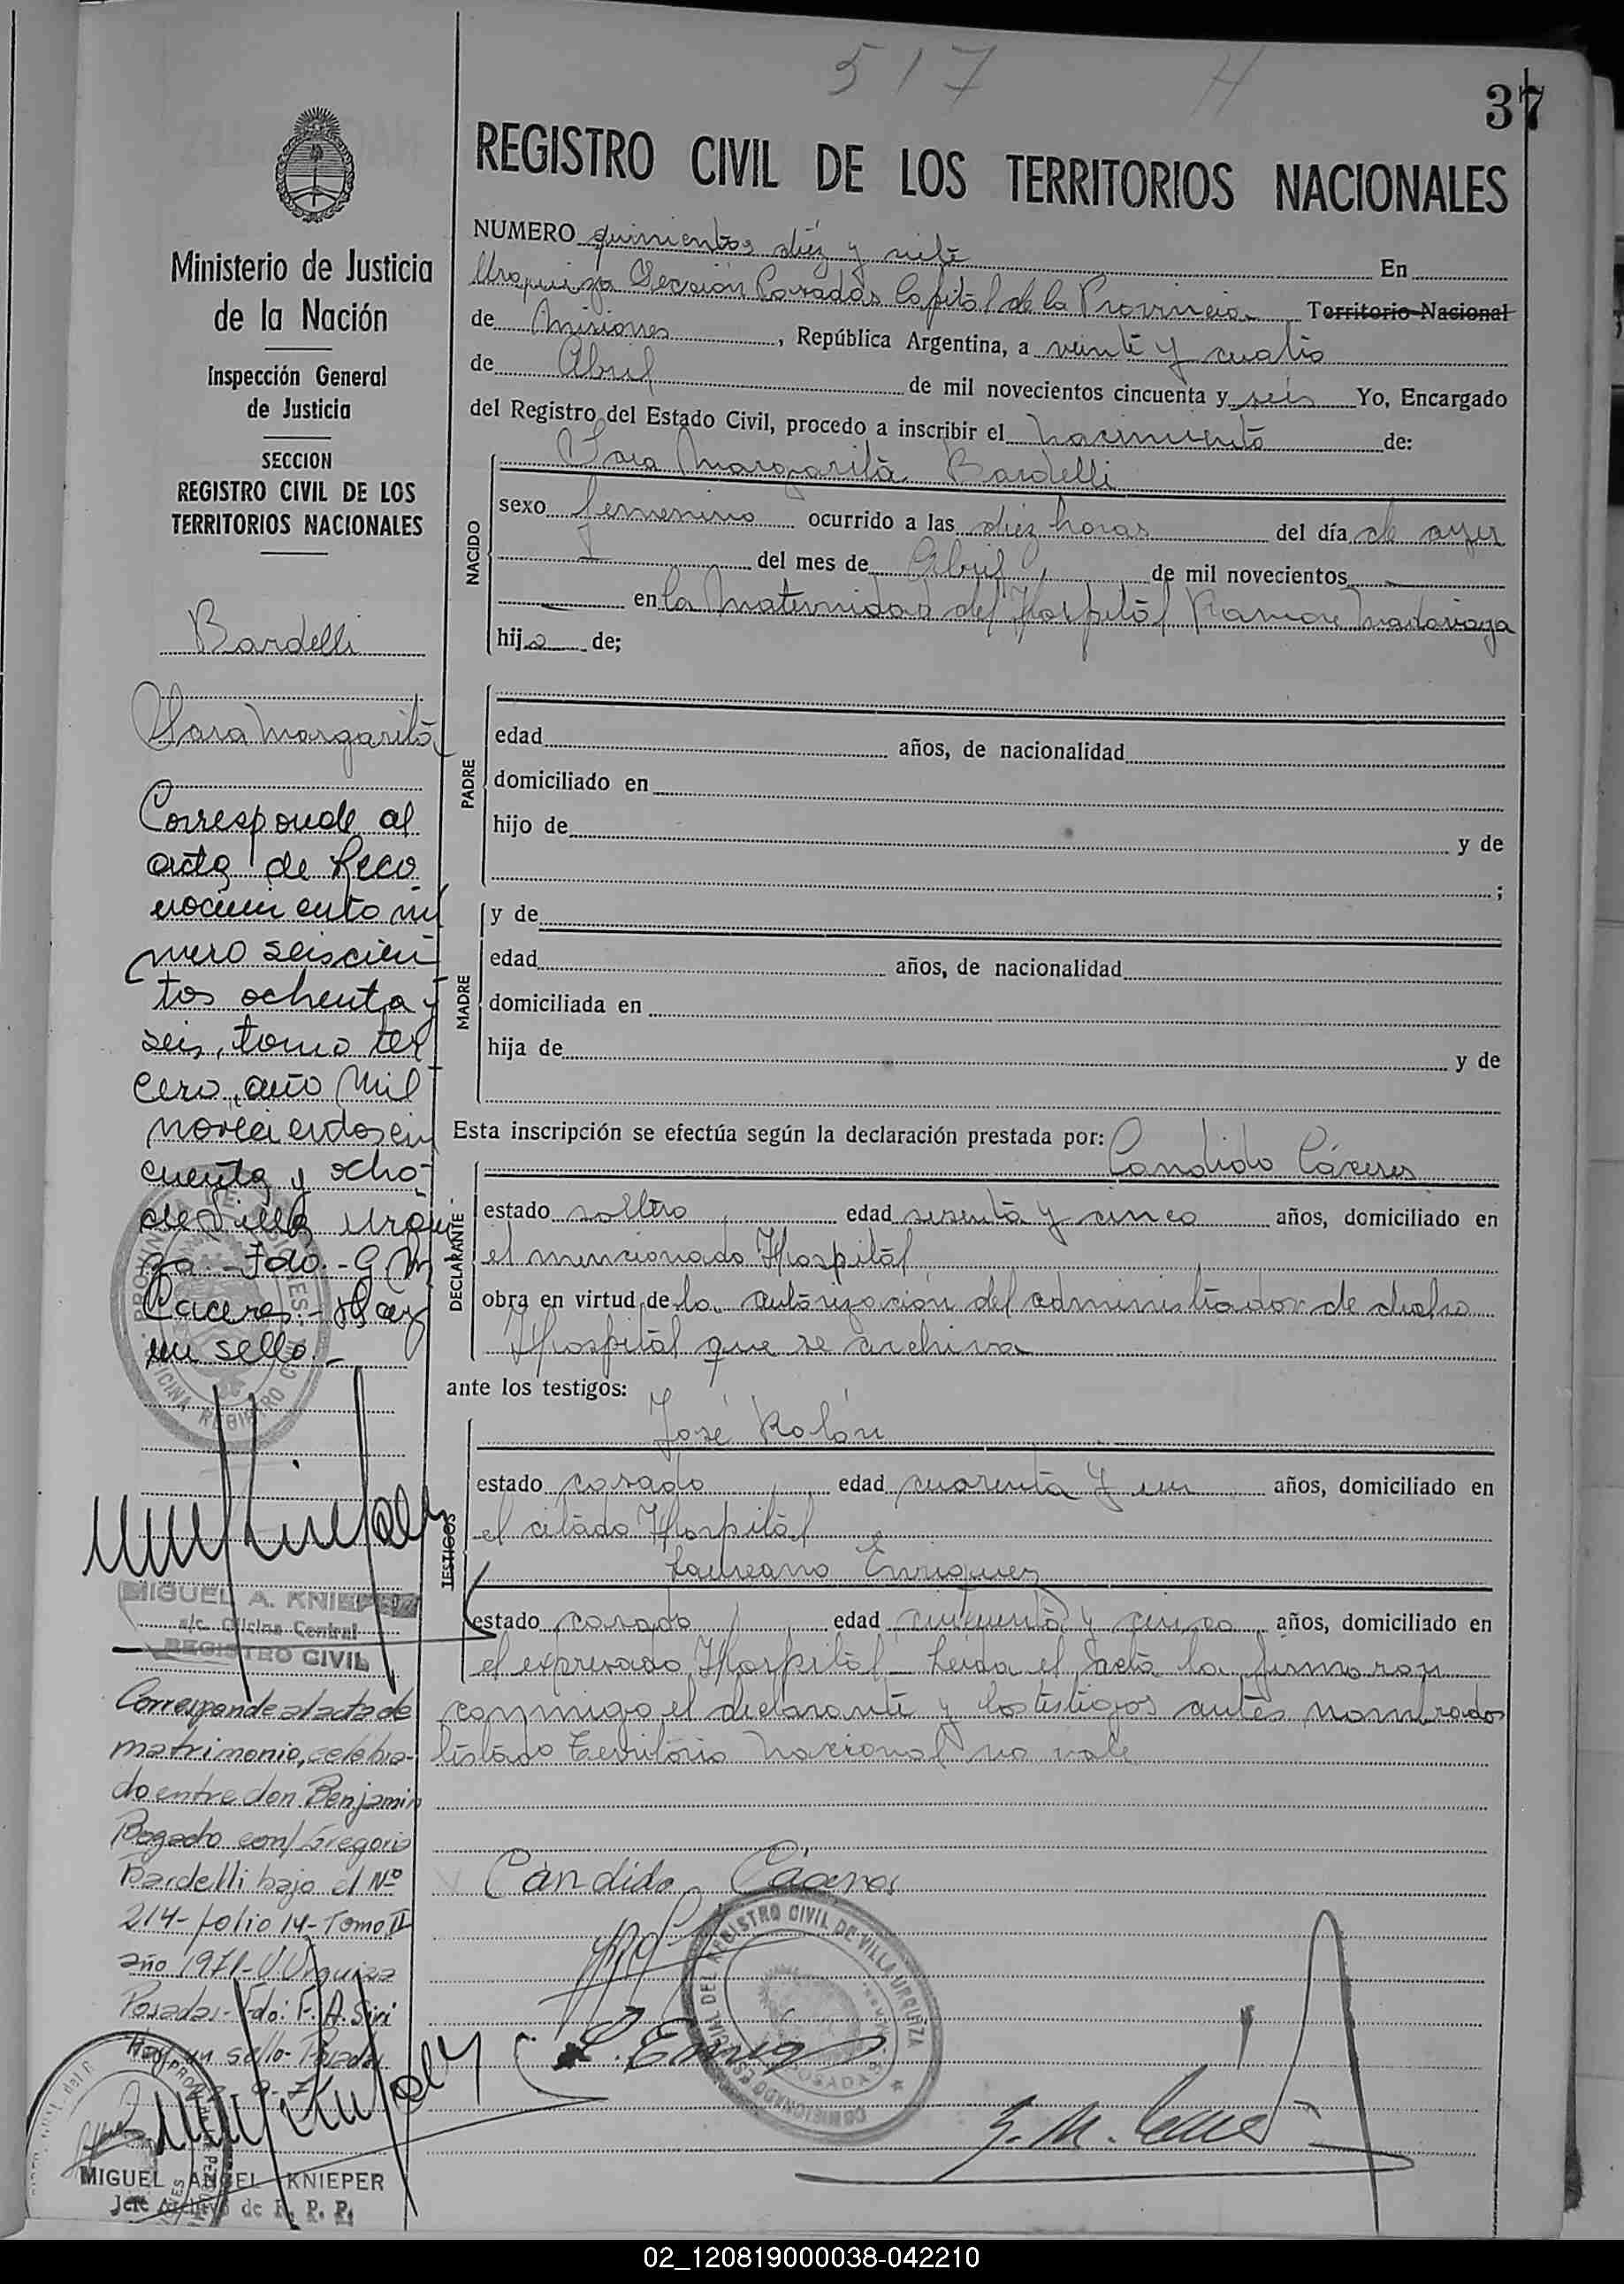 517
37
REGISTRO CIVIL DE LOS TERRITORIOS NACIONALES
Ministerio de Justicia
de la Nación
Inspección General
de Justicia
SECCION
REGISTRO CIVIL DE LOS
TERRITORIOS NACIONALES
Bardelli
Sara Margarita
Corresponde al
acta de Reco
nocimiento nú
mero seiscien
tos ochenta y
seis, tomo ter
cero, año mil
novecientos cin
cuenta y ocho
de Villa Urqui
za.- Fdo.- G. M.
Caceres.- Hay
un sello.-
MIGUEL A. KNIEPER
a/c. Oficina Central
REGISTRO CIVIL
Corresponde al acta de
matrimonio, celebra-
do entre don Benjamin
Bogado con/ Gregoria
Bardelli bajo el Nº
214- folio 14- Tomo II
año 1971- V. Urquiza
Posadas- Fdo: F. A. Siri
Hay un sello- Posadas
MIGUEL ANGEL KNIEPER
Jefe Archivo de R. P. P.
NUMERO quinientos diez y siete En
Urquiza Sección Posadas Capital de la Provincia Territorio Nacional
de Misiones, República Argentina, a veinte y cuatro
de Abril de mil novecientos cincuenta y seis Yo, Encargado
del Registro del Estado Civil, procedo a inscribir el nacimiento de:
NACIDO
Sara Margarita Bardelli
sexo femenino ocurrido a las diez horas del día de ayer
del mes de Abril de mil novecientos
en la Maternidad del Hospital Ramon Madariaga
hija de;
PADRE
edad años, de nacionalidad
domiciliado en
hijo de y de
;
MADRE
y de
edad años, de nacionalidad
domiciliada en
hija de y de
Esta inscripción se efectúa según la declaración prestada por: Candido Cáceres
DECLARANTE
estado soltero edad sesenta y cinco años, domiciliado en
el mencionado Hospital
obra en virtud de la autorización del administrador de dicho
Hospital que se archiva
ante los testigos:
TESTIGOS
José Rolón
estado casado edad cuarenta y un años, domiciliado en
el citado Hospital
Laureano Enriquez
estado casado edad cincuenta y cinco años, domiciliado en
el expresado Hospital- Leida el acta la firmaron
conmigo el declarante y los testigos antes nombrados
testado Territorio Nacional no vale
Càndido Càceres
L. Enriq
REGISTRO CIVIL DE VILLA URQUIZA
POSADAS
G. M.
02_120819000038-042210